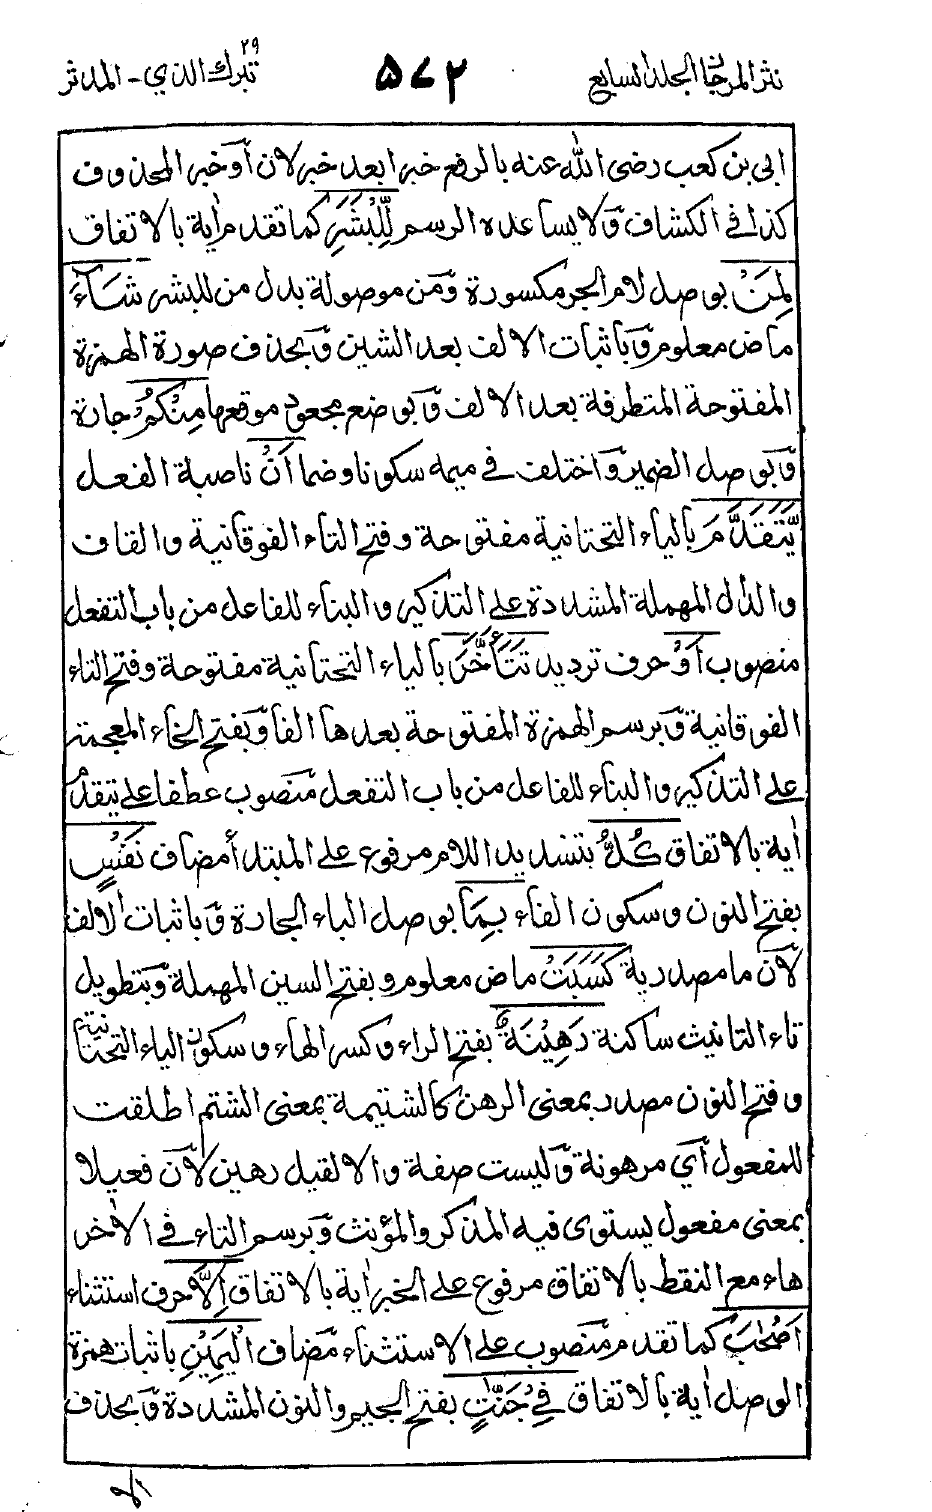 نثر المرجان الجلد السابع ۵۷۲ تبٰرك الذي ۲۹ - المدثر
ابي بن كعب رضى الله عنه بالرفع خبرا بعد خبر لان أو خبر المحذوف
كذا في الكشاف وَلا يساعده الرسم لِّلْبَشَرِ كما تقدم اٰية بالاتفاق
لِمَنْ بوصل لام الجر مكسورة ومَن موصولة بدل من للبشر شَآءَ
ماض معلوم وَبأثبات الالف بعد الشين وَبحذف صورة الهمزة
المفتوحة المتطرفة بعد الالف وَبوضع مجعودٍ موقعها مِنْكُمْ جارة
وَبوصل الضمير وَاختلف في ميمه سكونا وضما اَنْ ناصبة الفعل
يَّتَقَدَّمَ بألياء التحتانية مفتوحة وفتح التاء الفوقانية والقاف
والدال المهملة المشددة على التذكير والبناء للفاعل من باب التفعل
منصوب اَوْ حرف ترديد يَتَاَخَّرَ بألياء التحتانية مفتوحة وفتح التاء
الفوقانية وَبرسم الهمزة المفتوحة بعدها الفا وَبفتح الخاء المعجمة
على التذكير والبناء للفاعل من باب التفعل منصوب عطفا على يتقدم
اٰية بالاتفاق كُلُّ بتشديد اللام مرفوع على المبتدأ مضاف نَفْسٍ
بفتح النون وسكون الفاء بِمَا بوصل الباء الجارة وَباثبات الالف
لأن ما مصدرية كَسَبَتْ ماض معلوم وبفتح السين المهملة وَبتطويل
تاء التانيث ساكنة رَهِيْنَةٌ بفتح الراء وكسر الهاء وسكون الياء التحتانية
وفتح النون مصدر بمعنى الرهن كالشتيمة بمعنى الشتم اطلقت
للمفعول أي مرهونة وَليست صفة والا لقيل رهين لأن فعيلا
بمعنى مفعول يستوى فيه المذكر والمؤنث وَبرسم التاء في الاٰخر
هاء مع النقط بالاتفاق مرفوع على الخبر اٰية بالاتفاق اِلَّآ حرف استثناء
اَصْحٰبَ كما تقدم منصوب على الاستثناء مضاف الْيَمِيْنِ باثبات همزة
الوصل اٰية بالاتفاق فِيْ جَنّٰتٍ بفتح الجيم والنون المشددة وَبحذف